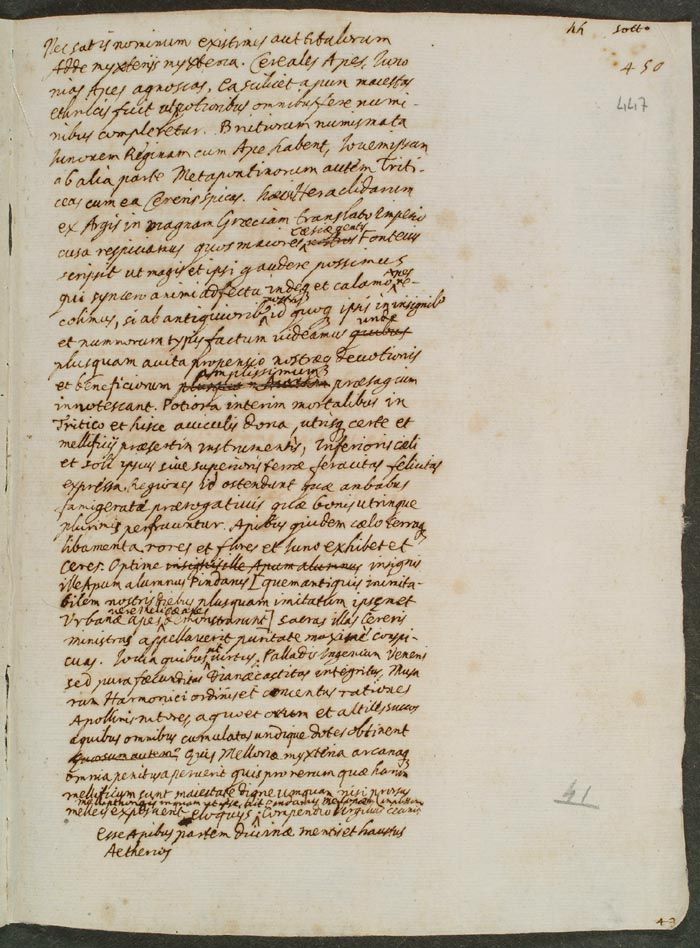 hh sotto
450
447
Nec satis nominum existimes aut titulorum
Adde myxteris myxteria. Cereales Apes, Iuno
nias Apes agnoscas, Ea scilicet apum maiestas
ethnicis fuit ut potioribus omnibus fere numi-
nibus compleretur. Brutiorum numismata
Iunonem Reginam cum Ape habent, Iovem
ab alia parte Metapontinorum autem Triti-
ceas cum ea Cereris spicas. Heraclidarum
ex Argis in magnam Græciam translato Imperio
cusa respiciamus quos maiores Fonteius
scripsit ut magis et ipsi gaudere possimus
qui syncero animi adfectu et calamo Apes
colimus, si ab antiquioribus nostris id quoq ipsis in insignibus
et nummorum typis factum videamus quibus unde
plusquam avita propensio nostræq devotionis
et beneficiorum amplissimum præsagium
innotescant. Potiora interim mortalibus in
Tritico et hisce aviculis dona, utrisq certe et
mellificij præsertim instrumentis, Inferioris cæli
et soli ipsius sive superioris terræ feracitas felicitas
expressa, Regiones id ostendunt quæ ambabus
famigeratæ prærogativis quæ bonis utrinque
plurimis perfruuntur. Apibus quidem cælo terraq
libamenta rores et flores et Iuno exhibet et
Ceres. Optime insignis ille Apum alumnus insignis
ille Apum alumnus Pindarus [quem antiquis inimita-
bilem nostris diebus plusquam imitatum ipsemet
Urbanæ apes vere melicæ apes demonstrarunt] sacras illas Cereris
ministras appellaverit puritate maxime conspi-
cuas. Iovia quibus ut virtus, Palladis Ingenium Veneris
sed pura fœcunditas Dianæ castitas integritas, Musa
rum Harmonici ordines et concentus rationes
Apollinis nitores a quo et ortum et altiles succos
a quibus omnibus cumulatas undique dotes obtinent
Quis Mellona myxteria arcanaq
omnia penitus aperuerit quis pro rerum quæ harum
mellificium sunt maiestate digne unquam nisi prorsus
melleis expresserit eloquijs, Compendio Virgilius cecinit
Esse Apibus partem divinæ mentis et haustus
Aetherios
41
42